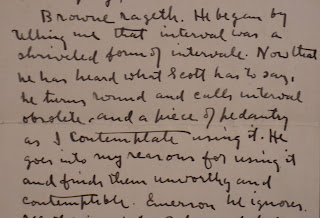 Browne rageth. He began by
telling me that interval was a
shriveled form of intervale. Now that
he has heard what Scott has to say,
he turns round and calls interval
obsolete and a piece of pedantry
as I contemplate using it. He
goes into my reasons for using it
and finds them unworthy and
contemptible. Emerson he ignores.